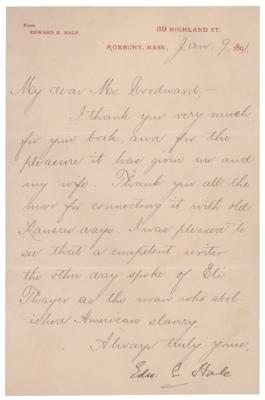 From
EDWARD E. HALE.
39 HIGHLAND ST.
ROXBURY, MASS., Jan. 9, 1891.
My dear Mr. Woodward,—
I thank you very much
for your book, and for the
pleasure it has given me and
my wife. Thank you all the
more for connecting it with old
Kansas days. I was pleased to
see that a competent writer
the other day spoke of Eli
Thayer as the man who abol-
ished American slavery.
Always truly yours,
Edw. E. Hale